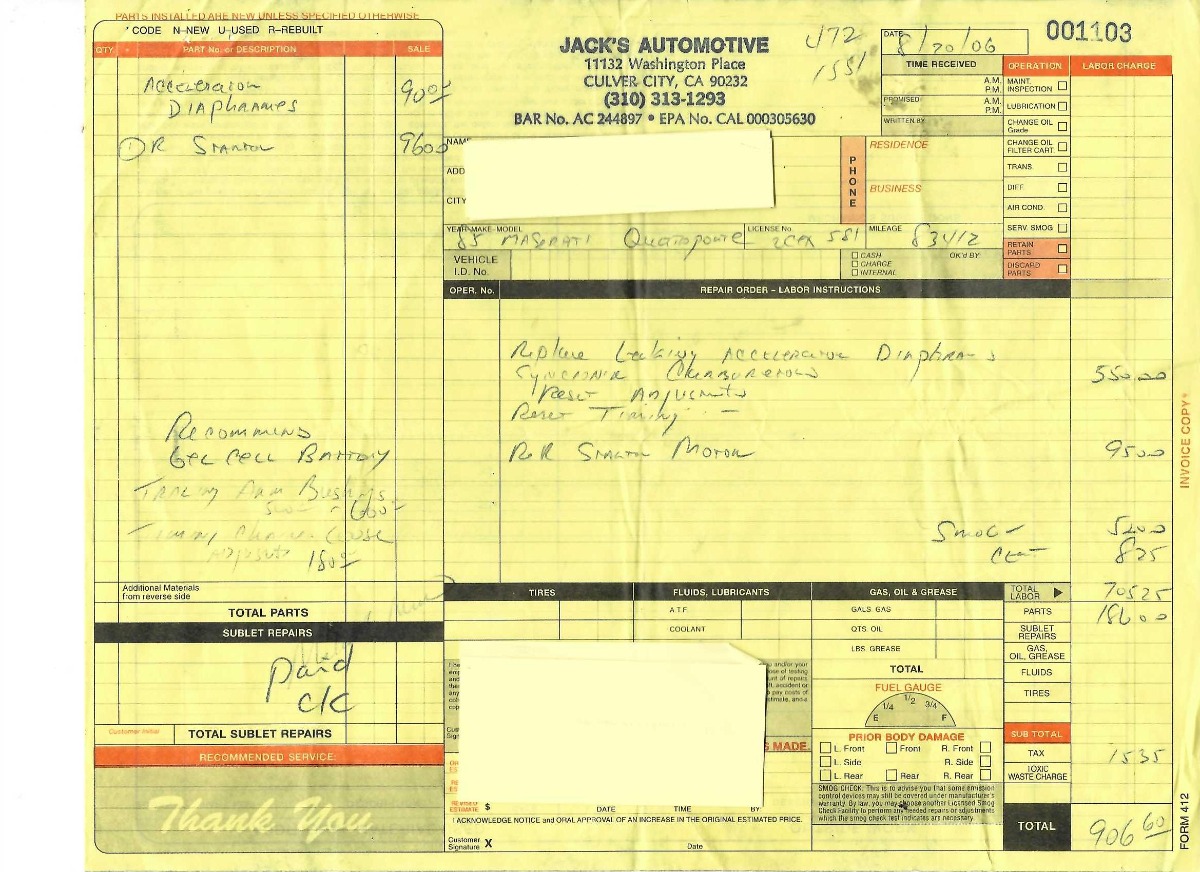 PARTS INSTALLED ARE NEW UNLESS SPECIFIED OTHERWISE
CODE N–NEW U–USED R–REBUILT
QTY. PART No. or DESCRIPTION SALE
Accelerator 90 00
Diaphrammes
1 R Starter 96 00
Recommend
Gel Cell Battery
Trailing Arm Bushings
500 - 600
Timing Chain
Adjust 180
Additional Materials
from reverse side
TOTAL PARTS
SUBLET REPAIRS
paid
c/c
Customer Initial
TOTAL SUBLET REPAIRS
RECOMMENDED SERVICE:
Thank You
JACK'S AUTOMOTIVE
11132 Washington Place
CULVER CITY, CA 90232
(310) 313-1293
BAR No. AC 244897 • EPA No. CAL 000305630
472
1551
DATE 8/20/06
001103
TIME RECEIVED
A.M.
P.M.
PROMISED
A.M.
P.M.
WRITTEN BY
NAME
ADD
CITY
PHONE
RESIDENCE
BUSINESS
YEAR-MAKE-MODEL
85 Maserati
LICENSE No.
581
MILEAGE
83412
VEHICLE
I.D. No.
CASH
CHARGE
INTERNAL
OK'd BY:
OPERATION LABOR CHARGE
MAINT. INSPECTION
LUBRICATION
CHANGE OIL Grade
CHANGE OIL FILTER CART.
TRANS.
DIFF.
AIR COND.
SERV. SMOG
RETAIN PARTS
DISCARD PARTS
OPER. No. REPAIR ORDER – LABOR INSTRUCTIONS
Replace Leaking Accelerator
550 00
Reset Adjustments
Reset Timing -
R&R Starter Motor 95 00
Smog 52 00
Cert 8 25
TIRES
FLUIDS, LUBRICANTS
A.T.F.
COOLANT
GAS, OIL & GREASE
GALS. GAS
QTS. OIL
LBS. GREASE
TOTAL
FUEL GAUGE
E 1/4 1/2 3/4 F
PRIOR BODY DAMAGE
L. Front Front R. Front
L. Side R. Side
L. Rear Rear R. Rear
SMOG CHECK: This is to advise you that some emission
control devices may still be covered under manufacturer's
warranty. By law, you may choose another Licensed Smog
Check Facility to perform any needed repairs or adjustments
which the smog check test indicates are necessary.
S MADE.
REVISED
ESTIMATE $ DATE TIME BY
I ACKNOWLEDGE NOTICE and ORAL APPROVAL OF AN INCREASE IN THE ORIGINAL ESTIMATED PRICE.
Customer
Signature X Date
TOTAL LABOR 705 25
PARTS 186 00
SUBLET REPAIRS
GAS, OIL, GREASE
FLUIDS
TIRES
SUB TOTAL
TAX 15 35
TOXIC WASTE CHARGE
TOTAL 906 60
INVOICE COPY
FORM 412